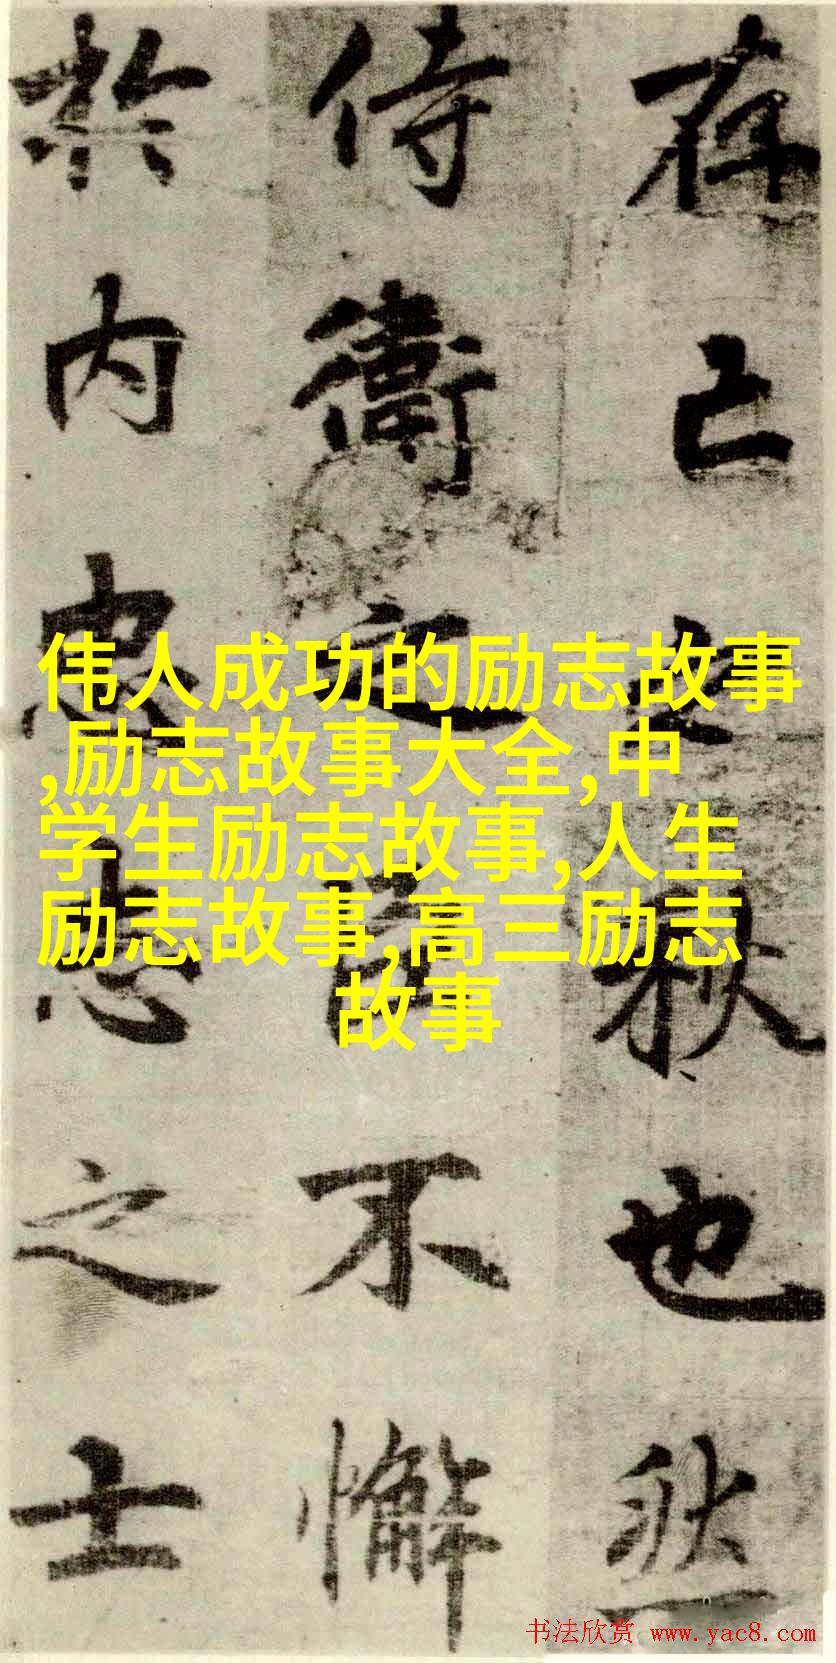 存亡之秋也然
侍衛之不懈
於内忠志之士
伟人成功的励志故事
,励志故事大全,中
学生励志故事,人生
励志故事,高三励志
故事
书法欣赏 www.yac8.com